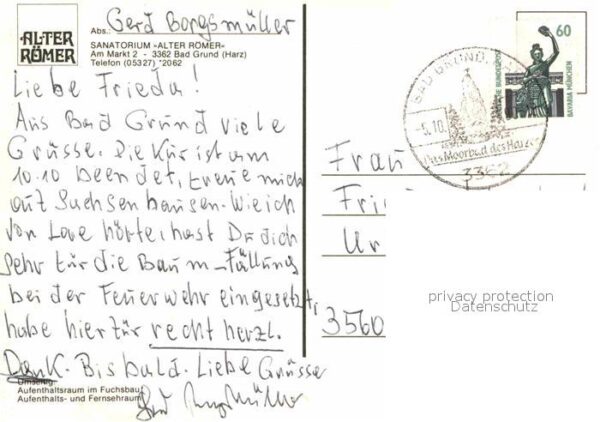 ALTER
RÖMER
Abs.: Gerd Borgsmüller
SANATORIUM »ALTER RÖMER«
Am Markt 2 - 3362 Bad Grund (Harz)
Telefon (05327) *2062
Liebe Frieda!
Aus Bad Grund viele
Grüsse. Die Kur ist am
10.10 Beendet, freue mich
auf Sachsenhausen. Wie ich
von Love hörte hast Du dich
sehr für die Baum-Fällung
bei der Feuerwehr eingesetzt,
habe hierfür recht herzl.
Dank. Bis bald. Liebe Grüsse
Gerd Borgsmüller
Umseitig:
Aufenthaltsraum im Fuchsbau
Aufenthalts- und Fernsehraum
60
DEUTSCHE BUNDESPOST
BAVARIA MÜNCHEN
BAD GRUND,
-5.10.
Das Moorbad des Harzes
3362
Frau
Fri
Ur
3560
privacy protection
Datenschutz